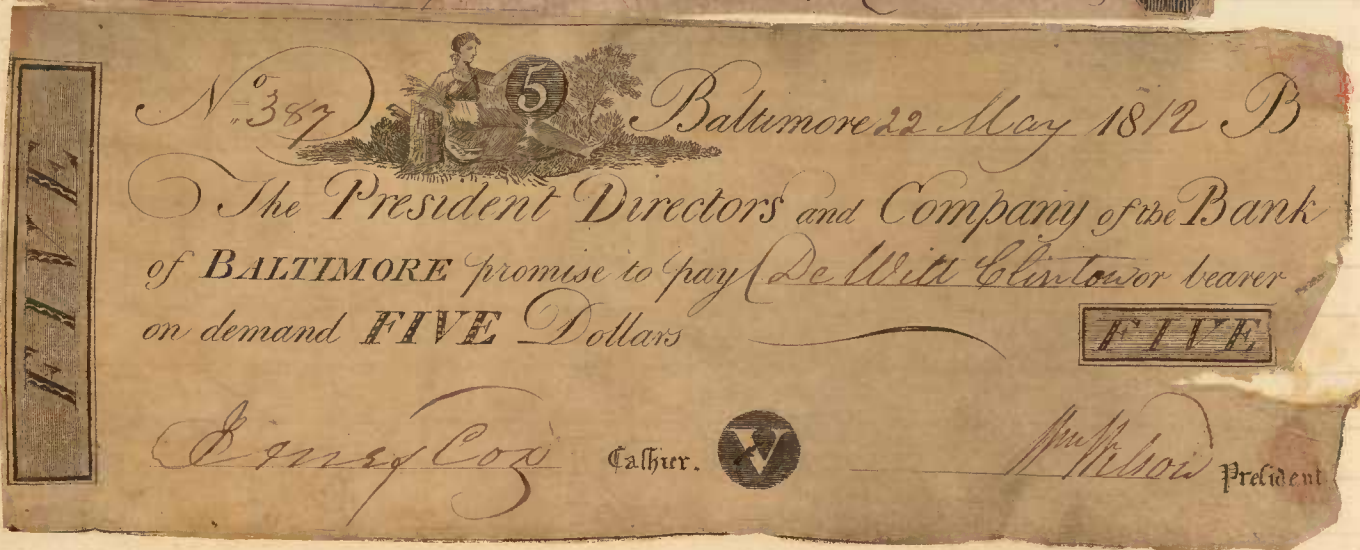 FIVE
No. 387 5 Baltimore 22 May 1812 B
The President Directors and Company of the Bank
of BALTIMORE promise to pay De Witt Clinton or bearer
on demand FIVE Dollars FIVE
Cox Cashier. V Wm Wilson President